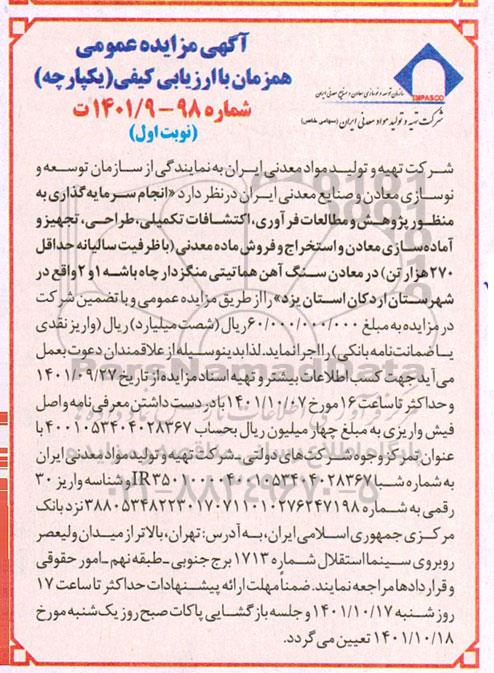 آگهی مزایده عمومی
همزمان با ارزیابی کیفی(یکپارچه)
شماره ۹۸-۱۴۰۱/۹ ت
(نوبت اول)
IMPASCO
سازمان توسعه و نوسازی معادن و صنایع معدنی ایران
شرکت تهیه و تولید مواد معدنی ایران (سهامی خاص)
شرکت تهیه و تولیـد مواد معدنی ایـران به نمایندگی از سازمان توسعه و
نوسازی معادن و صنایع معدنی ایران در نظر دارد «انجام سرمایه گذاری به
منظور پژوهش و مطالعات فرآوری، اکتشافات تکمیلی، طراحی، تجهیز و
آماده سازی معادن و استخراج و فروش ماده معدنی (با ظرفیت سالیانه حداقل
۲۷۰ هزار تن) در معادن سنگ آهن هماتیتی منگزدار چاه باشه ۱ و ۲ واقع در
شهرستان اردکان استان یزد» را از طریق مزایده عمومی و با تضمین شرکت
در مزایده به مبلغ ۶۰/۰۰۰/۰۰۰/۰۰۰ ریال (شصت میلیارد) ریال (واریز نقدی
یا ضمانت نامه بانکی) را اجرا نماید. لذا بدینوسیله از علاقمندان دعوت بعمل
می آید جهت کسب اطلاعات بیشتر و تهیه اسناد مزایده از تاریخ ۱۴۰۱/۰۹/۲۷
و حداکثر تا ساعت ۱۶ مورخ ۱۴۰۱/۱۰/۰۷ با در دست داشتن معرفی نامه و اصل
فیش واریزی به مبلغ چهار میلیون ریال بحساب ۴۰۰۱۰۵۳۴۰۴۰۲۸۳۶۷ با
عنوان تمرکز وجوه شرکت های دولتی ـ شرکت تهیه و تولید مواد معدنی ایران
به شماره شبا
رقمی به شماره
نزد بانک
مرکزی جمهوری اسلامی ایران، به آدرس: تهران، بالاتر از میدان ولیعصر
روبروی سینما استقلال شماره ۱۷۱۳ برج جنوبی ـ طبقه نهم ـ امور حقوقی
و قراردادها مراجعه نمایند. ضمناً مهلت ارائه پیشنهادات حداکثر تا ساعت ۱۷
روز شنبه ۱۴۰۱/۱۰/۱۷ و جلسه بازگشایی پاکات صبح روز یک شنبه مورخ
۱۴۰۱/۱۰/۱۸ تعیین می گردد.